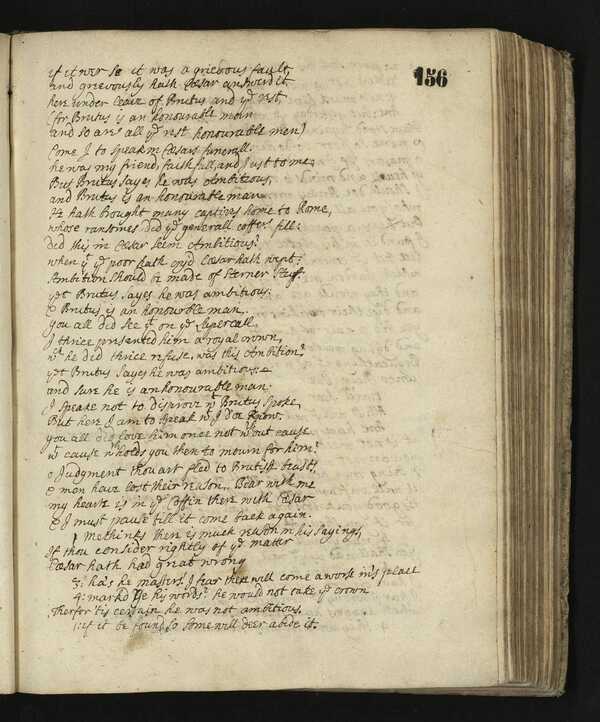 156
if it wer so it was a grievous fault,
and grievously hath Cæsar answerd it
here under leave of Brutus and ye rest,
(for Brutus is an honourable man
and so are all ye rest honourable men)
Come I to speak in Cæsars funerall.
he was my friend, faithfull, and Just to me,
But Brutus sayes he was Ambitious,
and Brutus is an honourable man
He hath bought many captives home to Rome,
whose ransomes did ye generall coffers fill:
did this in Cæsar seem Ambitious?
when yt ye poor hath cryd Cæsar hath wept:
Ambition should be made of sterner stuf.
yet Brutus sayes he was ambitious:
& Brutus is an honourable man.
you all did see yt on ye Lupercall,
I thrice presented him a royal crown,
wch he did thrice refuse, was this Ambition?
yet Brutus Sayes he was ambitious.
and sure he is an honourable man.
I speake not to disprove wt Brutus spoke,
But here I am to speak wt I doe know.
you all did love him once not wthout cause
wt cause wtholds you then to mourn for him?
o Judgment thou art fled to Brutish beasts,
& men have lost their reason. Bear with me
my heart is in ye Coffin there with Cæsar
& I must pause till it come back again.
1 Methinks there is much reason in his sayings,
If thou consider rightly of ye matter
Cæsar hath had great wrong
3: ha's he masters? I fear there will come a worse in's place
4: markd ye his words? he would not take ye crown
Therfor 'tis certain he was not ambitious.
1: if it be found so some will deer abide it.